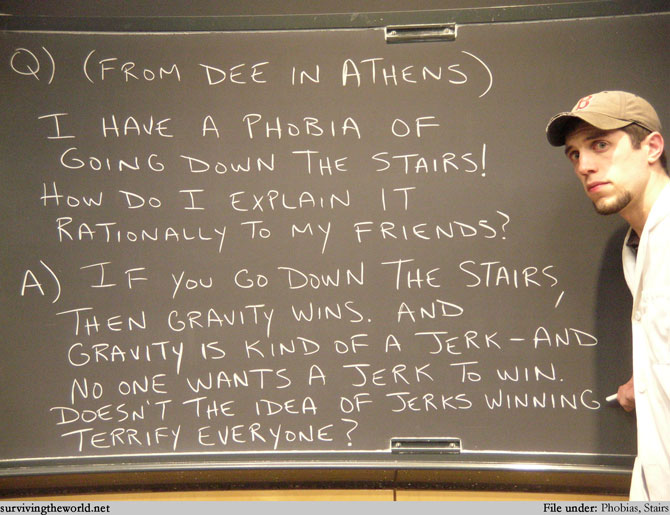 Q) (FROM DEE IN ATHENS)
I HAVE A PHOBIA OF
GOING DOWN THE STAIRS!
HOW DO I EXPLAIN IT
RATIONALLY TO MY FRIENDS?
A) IF YOU GO DOWN THE STAIRS,
THEN GRAVITY WINS. AND
GRAVITY IS KIND OF A JERK - AND
NO ONE WANTS A JERK TO WIN.
DOESN'T THE IDEA OF JERKS WINNING
TERRIFY EVERYONE?
B
survivingtheworld.net File under: Phobias, Stairs